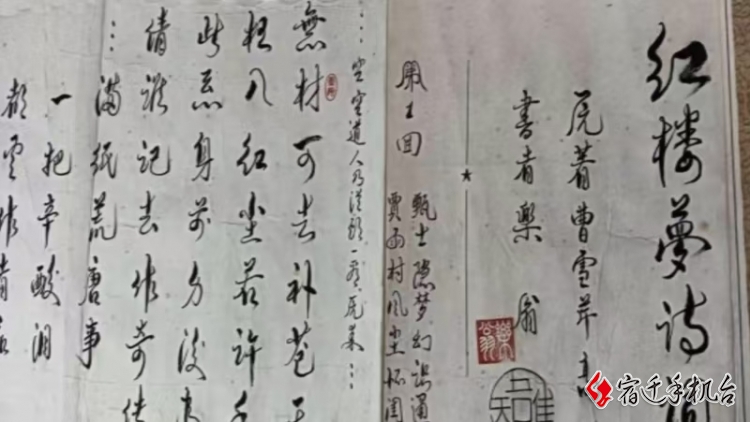 红楼梦诗词
原著曹雪芹
書者樂翁
樂翁
回
甄士隐梦幻识通
贾雨村风尘怀闺
空空道人乃从头一看原来……
無材可去补苍天
枉入红尘若许年
此系身前身后事
倩谁记去作奇传
……
满纸荒唐事
一把辛酸泪
都云作者
宿迁手机台